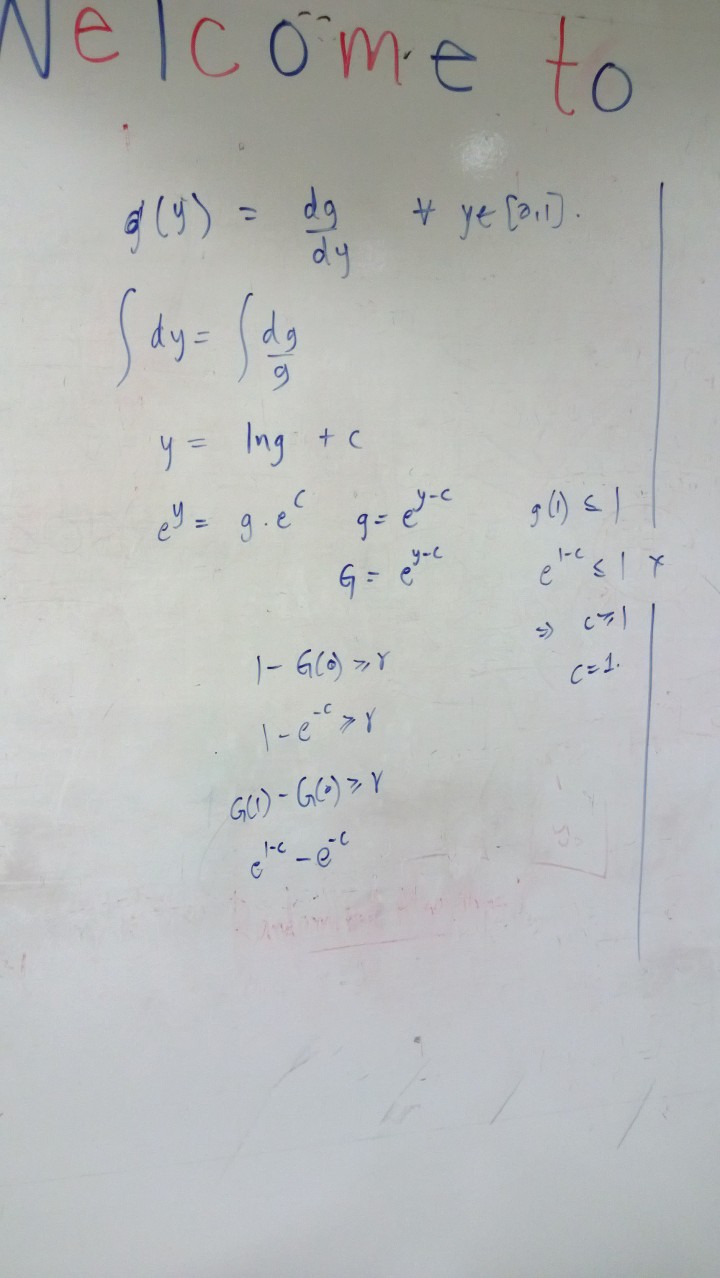 Welcome to
g(y) = dg/dy ∀ y∈[0,1].
∫dy = ∫dg/g
y = lng + c
e^y = g.e^c g = e^{y-c}
G = e^{y-c}
g(1) ≤ 1
e^{1-c} ≤ 1
⇒ c ≥ 1
c=1.
1 - G(0) ≥ γ
1 - e^{-c} ≥ γ
G(1) - G(0) ≥ γ
e^{1-c} - e^{-c}